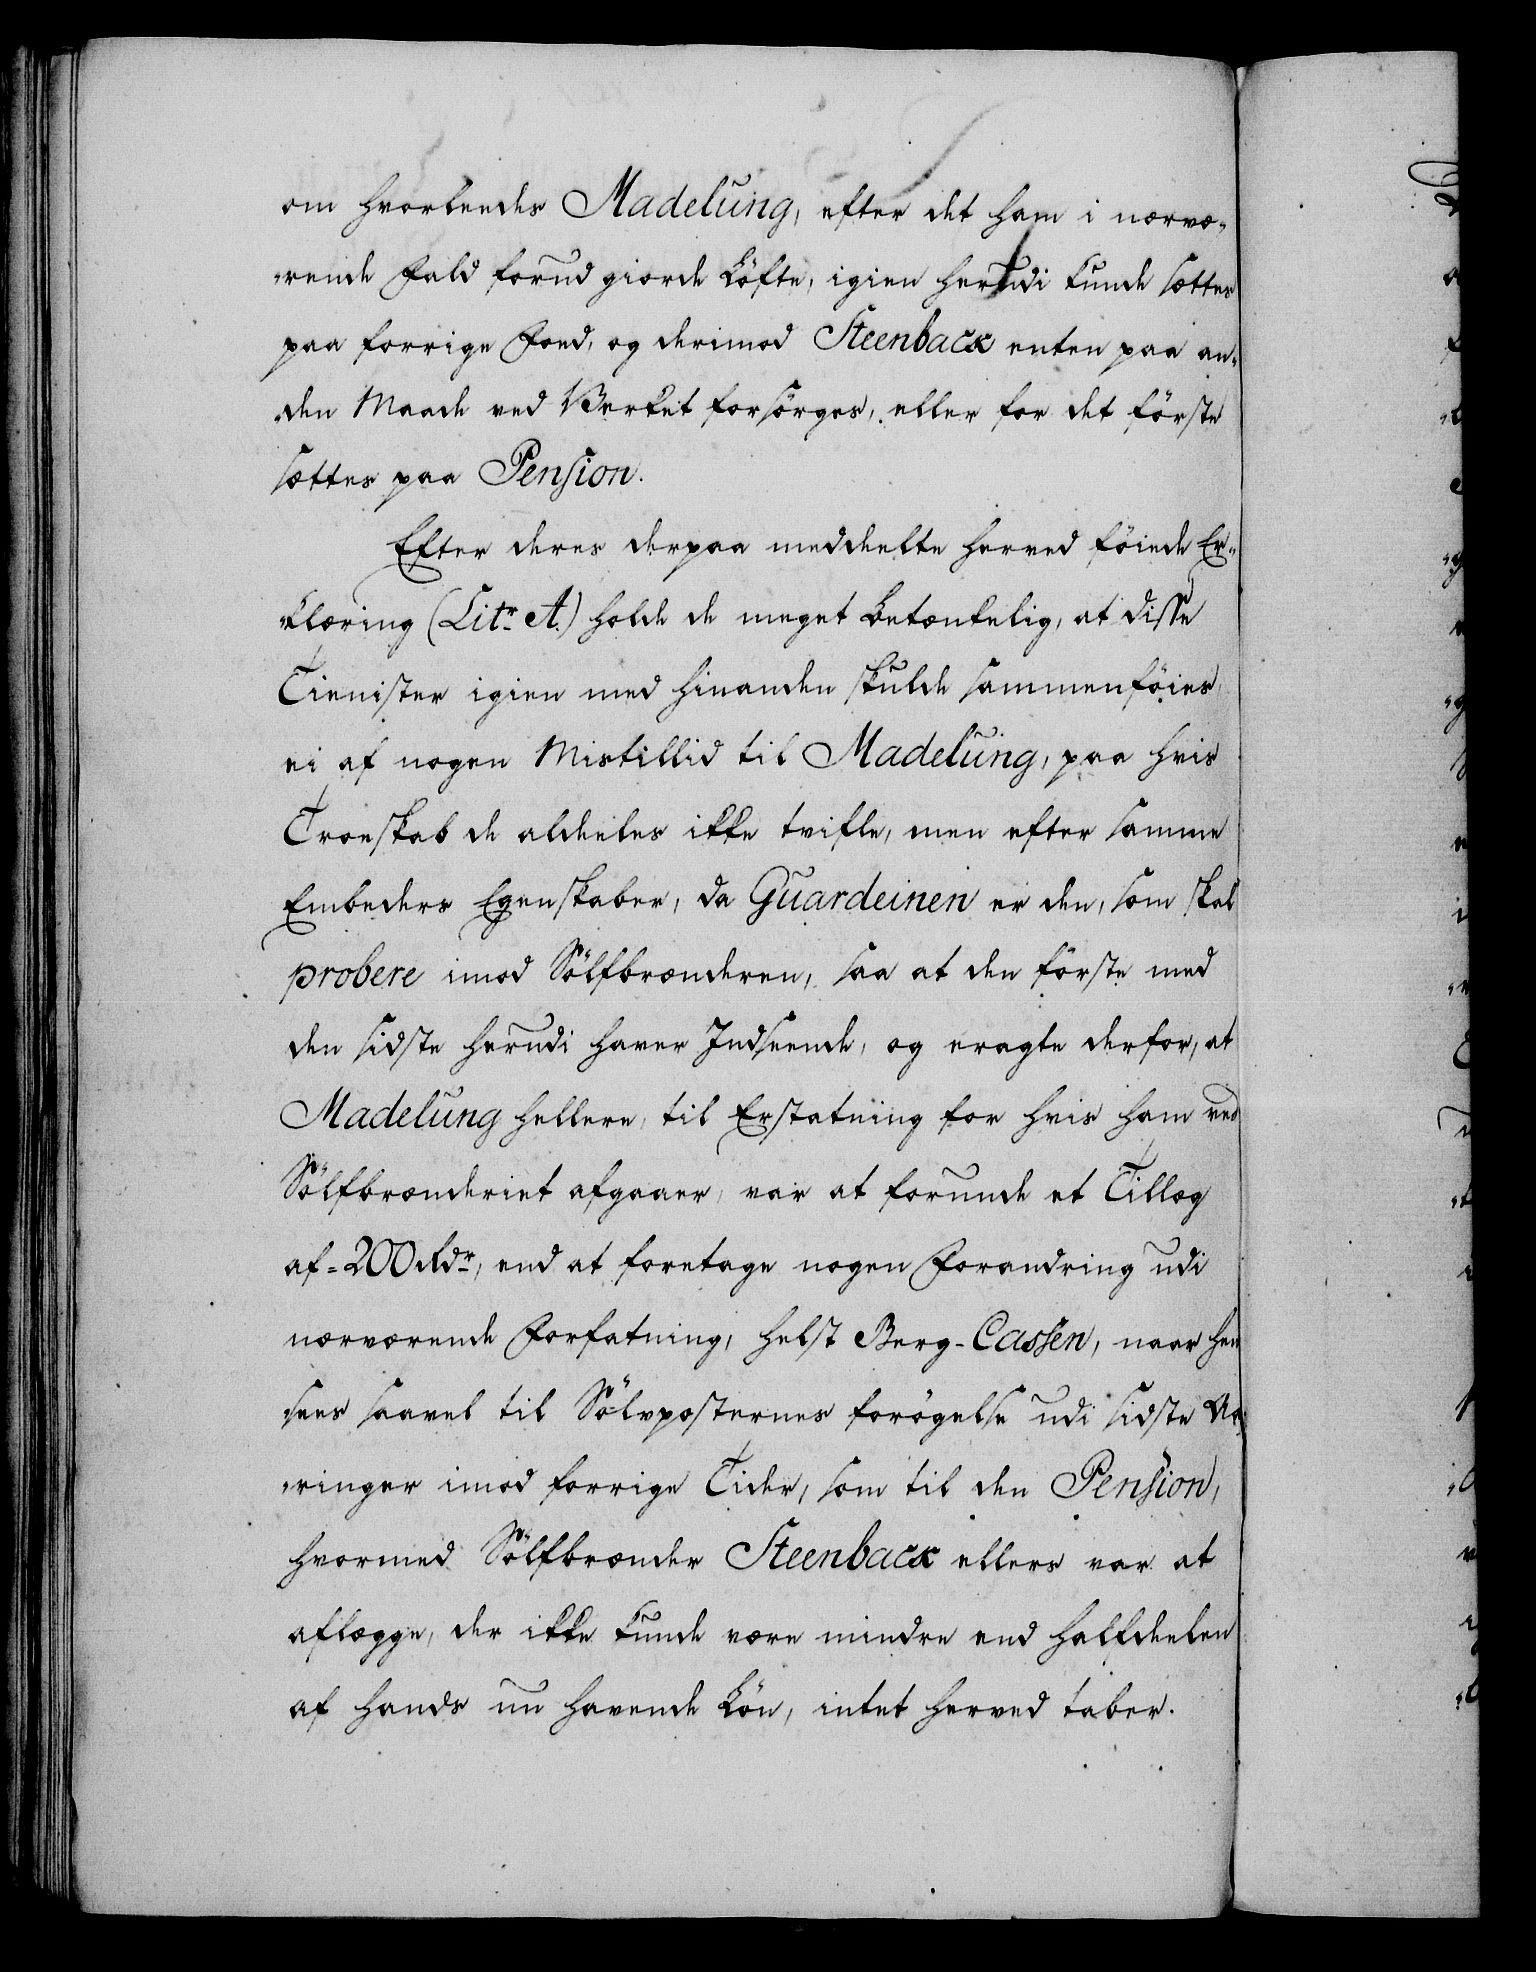 om hvorledes Madelung, efter det ham i nærvæ-
-rende Fald forud giorde Löfte, igien herudi kunde sættes
paa forrige Foed, og derimod Steenback enten paa an-
-den Maade ved Verket forsörges, eller for det förste
sættes paa Pension.
Efter deres derpaa meddeelte herved föiede Er-
-klæring (Litr A.) holde de meget betænkelig, at disse
Tienister igien med hinanden skulde sammenföies,
ei af nogen Mistillid til Madelung, paa hvis
Troeskab de aldeeles ikke tvifle, men efter samme
Embeders Egenskaber, da Guardeinen er den, som skal
probere imod Sölfbrænderen, saa at den förste med
den sidste herudi haver Indseende, og eragte derfor, at
Madelung hellere, til Erstatning for hvis ham ved
Sölfbrænderiet afgaaer, var at forunde et Tillæg
af - 200 Rdr, end at foretage nogen Forandring udi
nærværende Forfatning, helst Berg-Cassen, naar hen
sees saavel til Sölvposternes forögelse udi sidste Aa-
-ringer imod forrige Tider, som til den Pension,
hvormed Sölfbrænder Steenback ellers var at
aflægge, der ikke kunde være mindre end halfdeelen
af hands nu havende Lön, intet herved taber.